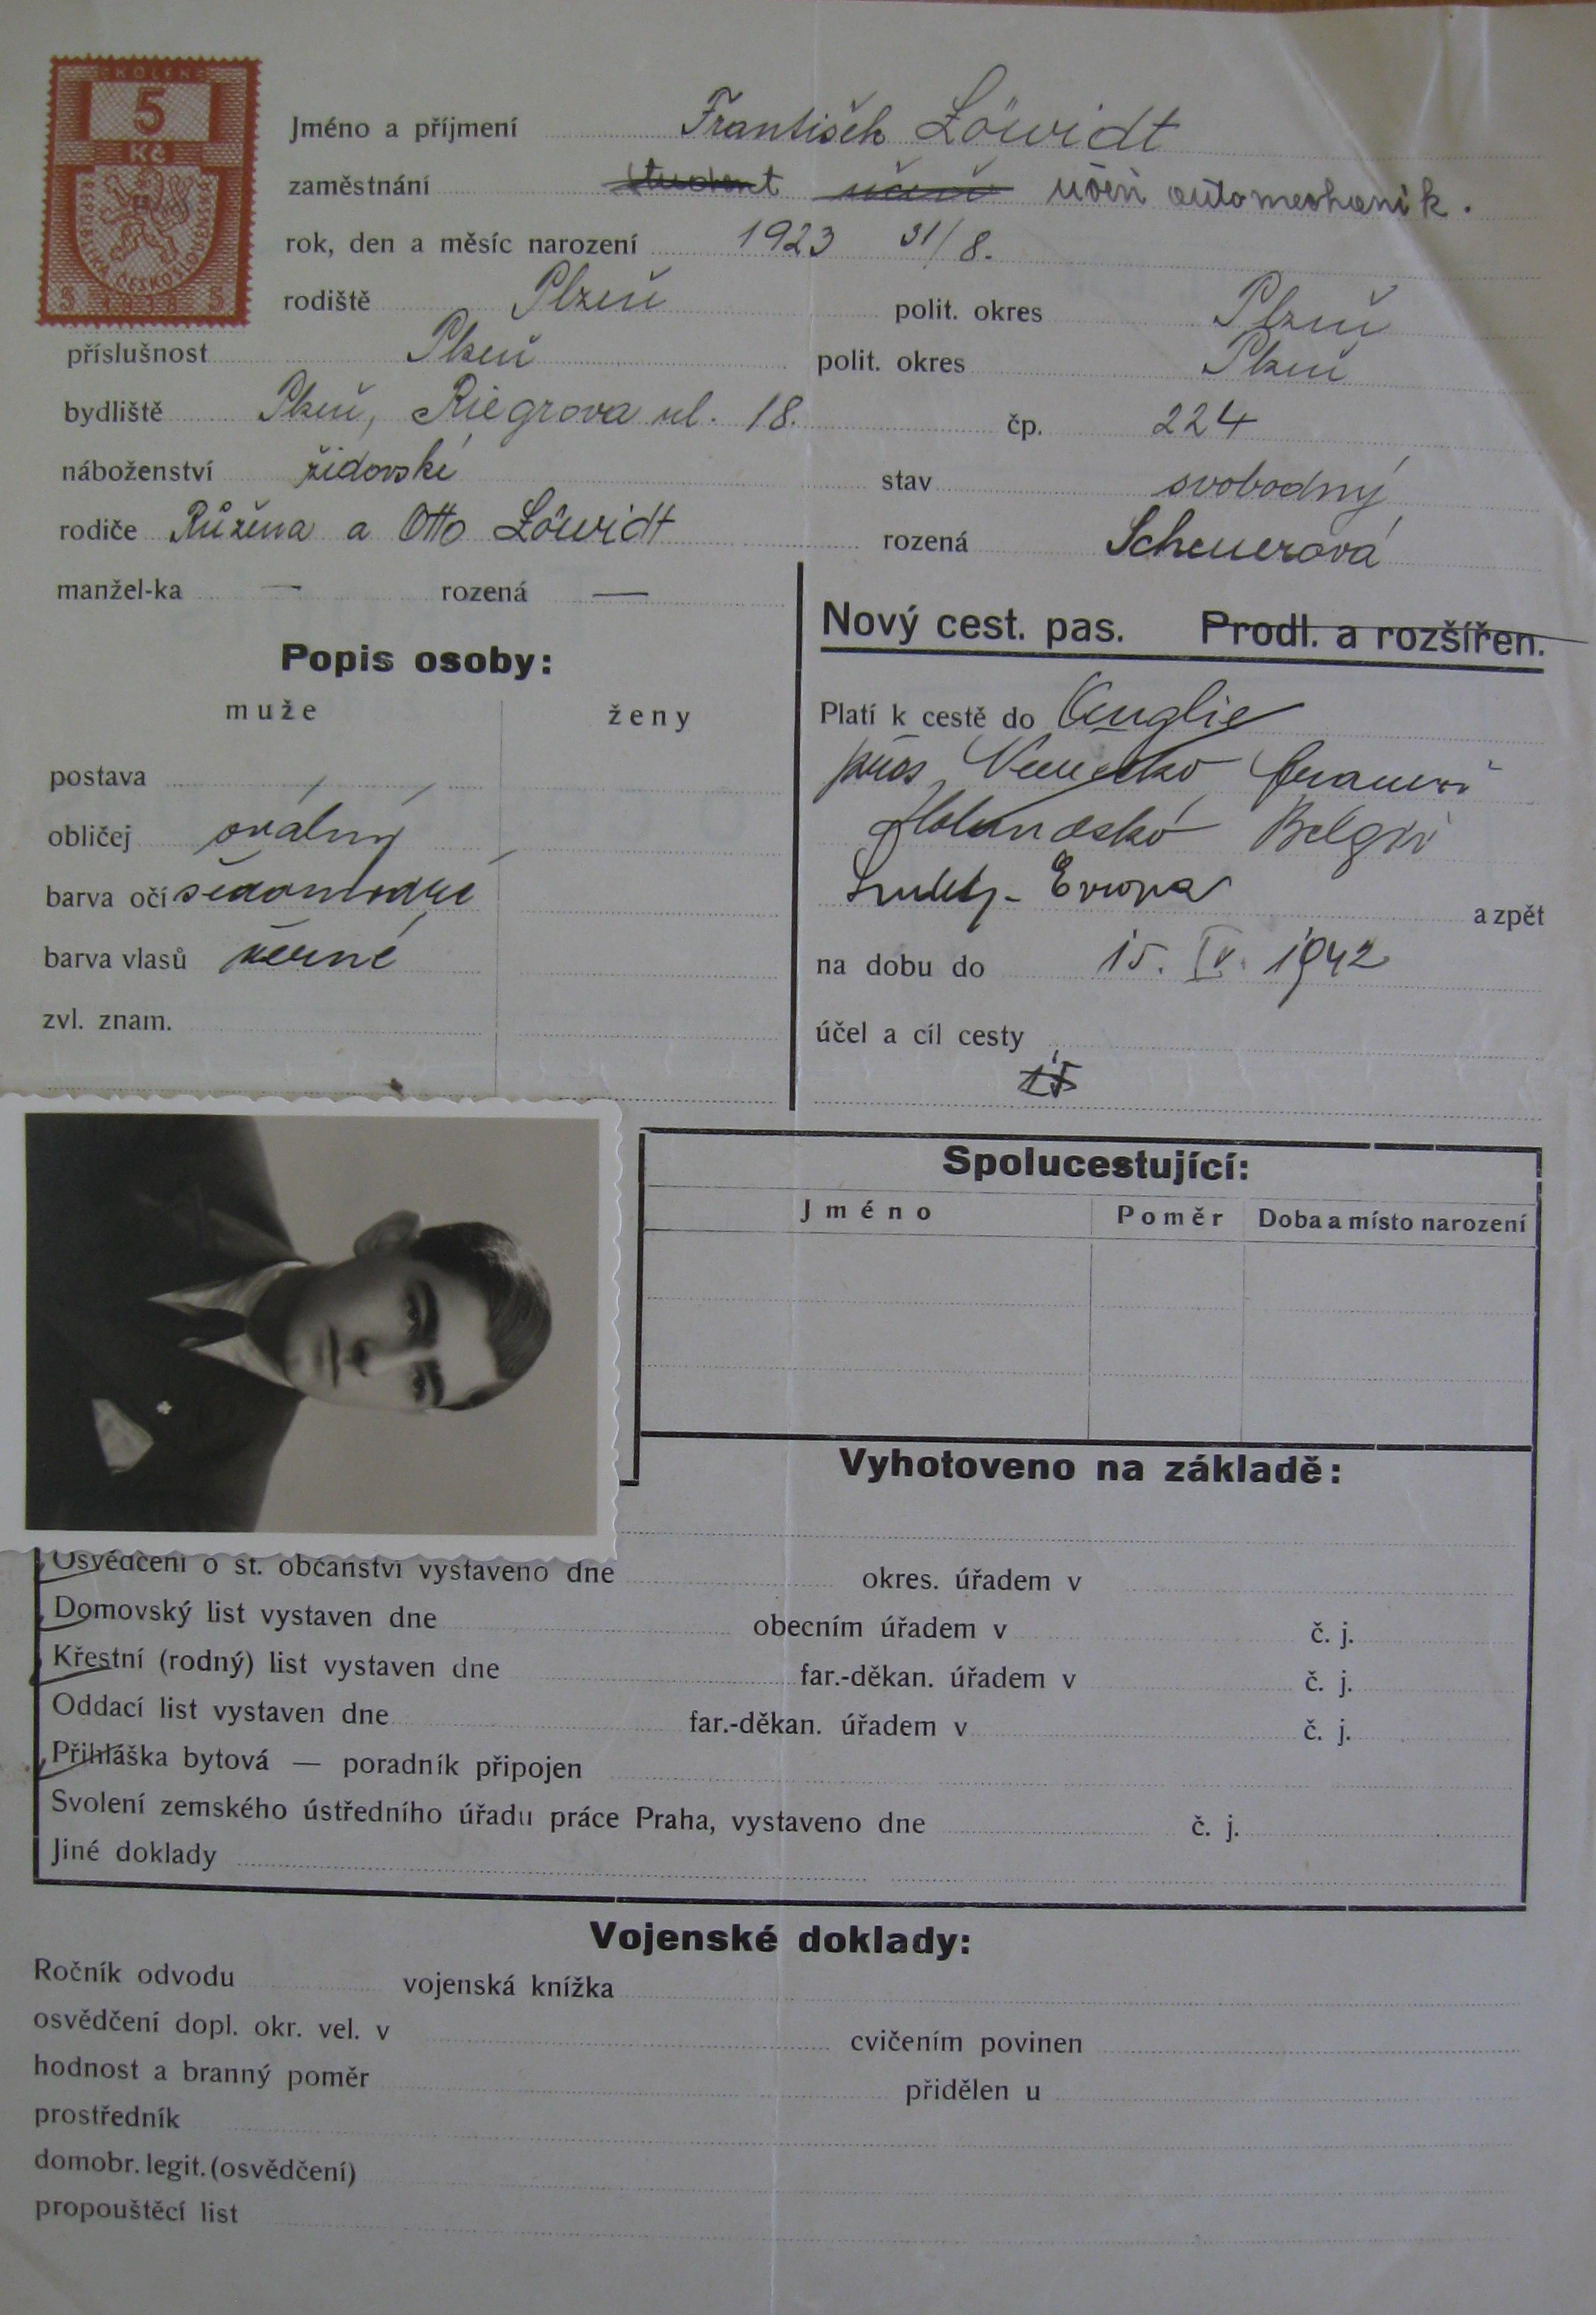 5 KOLEK 5
Kč
REPUBLIKA ČESKOSLOVENSKÁ
5 1938 5
Jméno a příjmení František Löwidt
zaměstnání student učeň učeň automechanik.
rok, den a měsíc narození 1923 31/8.
rodiště Plzeň polit. okres Plzeň
příslušnost Plzeň polit. okres Plzeň
bydliště Plzeň, Riegrova ul. 18. čp. 224
náboženství židovské stav svobodný
rodiče Růžena a Otto Löwidt rozená Scheuerová
manžel-ka — rozená —
Nový cest. pas. Prodl. a rozšířen.
Popis osoby:
muže ženy
Platí k cestě do Anglie
přes Německo Francii
Holandsko Belgii
Evropa a zpět
na dobu do 15. IV. 1942
účel a cíl cesty
15
postava
obličej oválný
barva očí šedomodré
barva vlasů černé
zvl. znam.
Spolucestující:
Jméno Poměr Doba a místo narození
Vyhotoveno na základě:
Osvědčení o st. občanství vystaveno dne okres. úřadem v
Domovský list vystaven dne obecním úřadem v č. j.
Křestní (rodný) list vystaven dne far.-děkan. úřadem v č. j.
Oddací list vystaven dne far.-děkan. úřadem v č. j.
Přihláška bytová — poradník připojen
Svolení zemského ústředního úřadu práce Praha, vystaveno dne č. j.
Jiné doklady
Vojenské doklady:
Ročník odvodu vojenská knížka
osvědčení dopl. okr. vel. v cvičením povinen
hodnost a branný poměr přidělen u
prostředník
domobr. legit. (osvědčení)
propouštěcí list